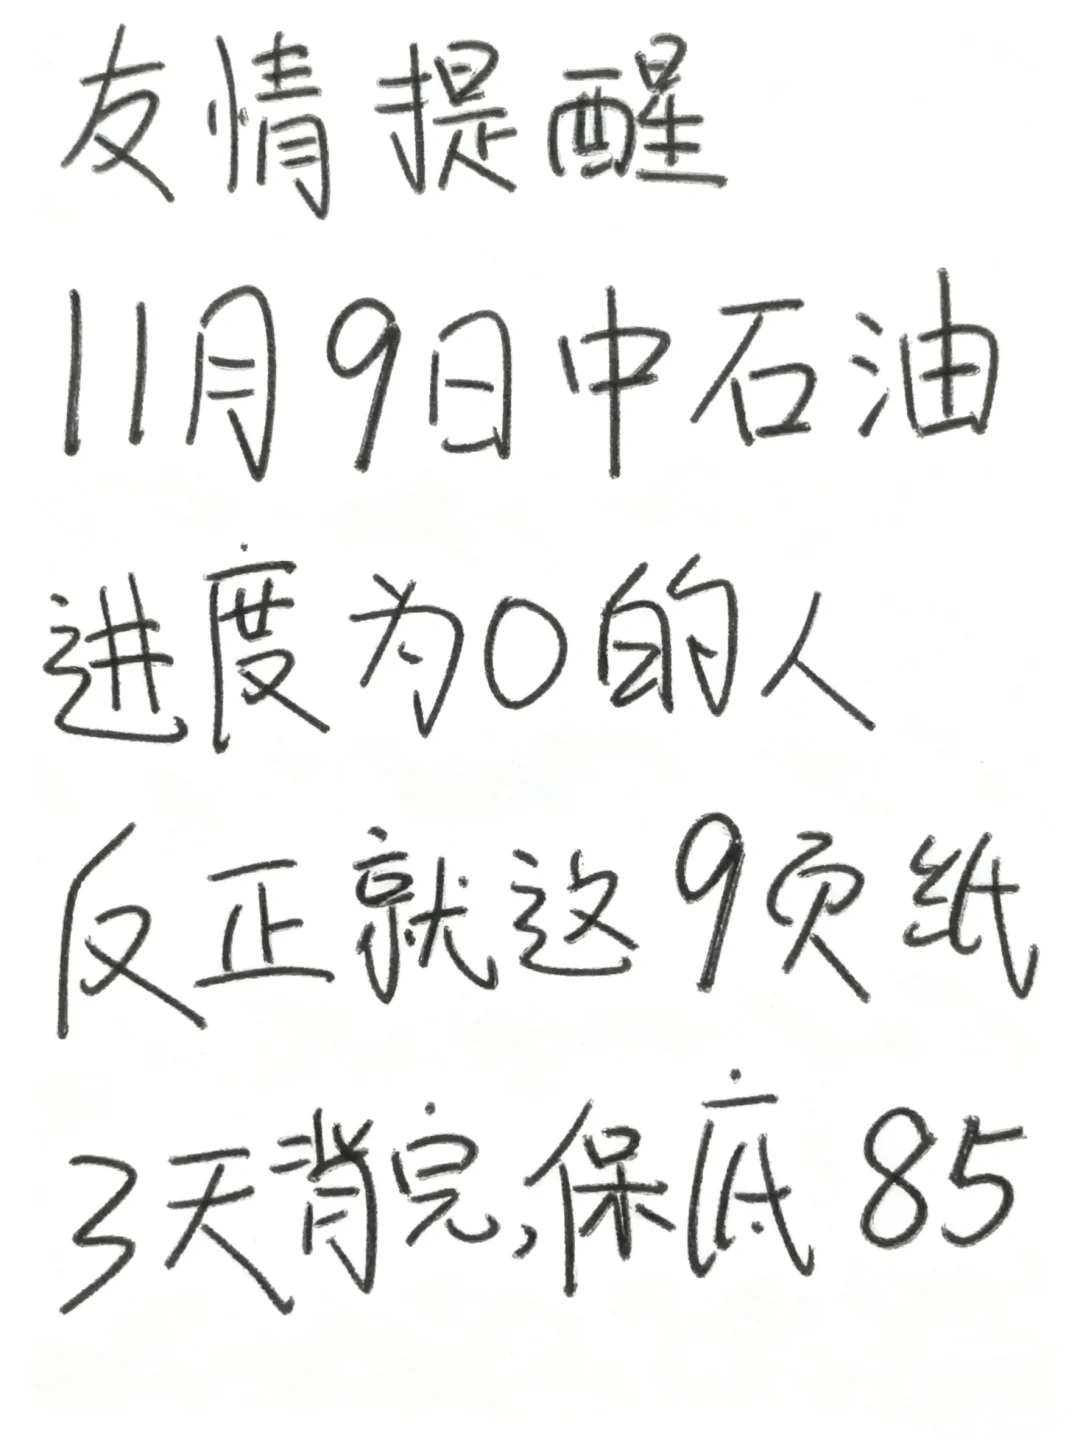 友情提醒
11月9日中石油
进度为0的人
反正就这9页纸
3天背完,保底85